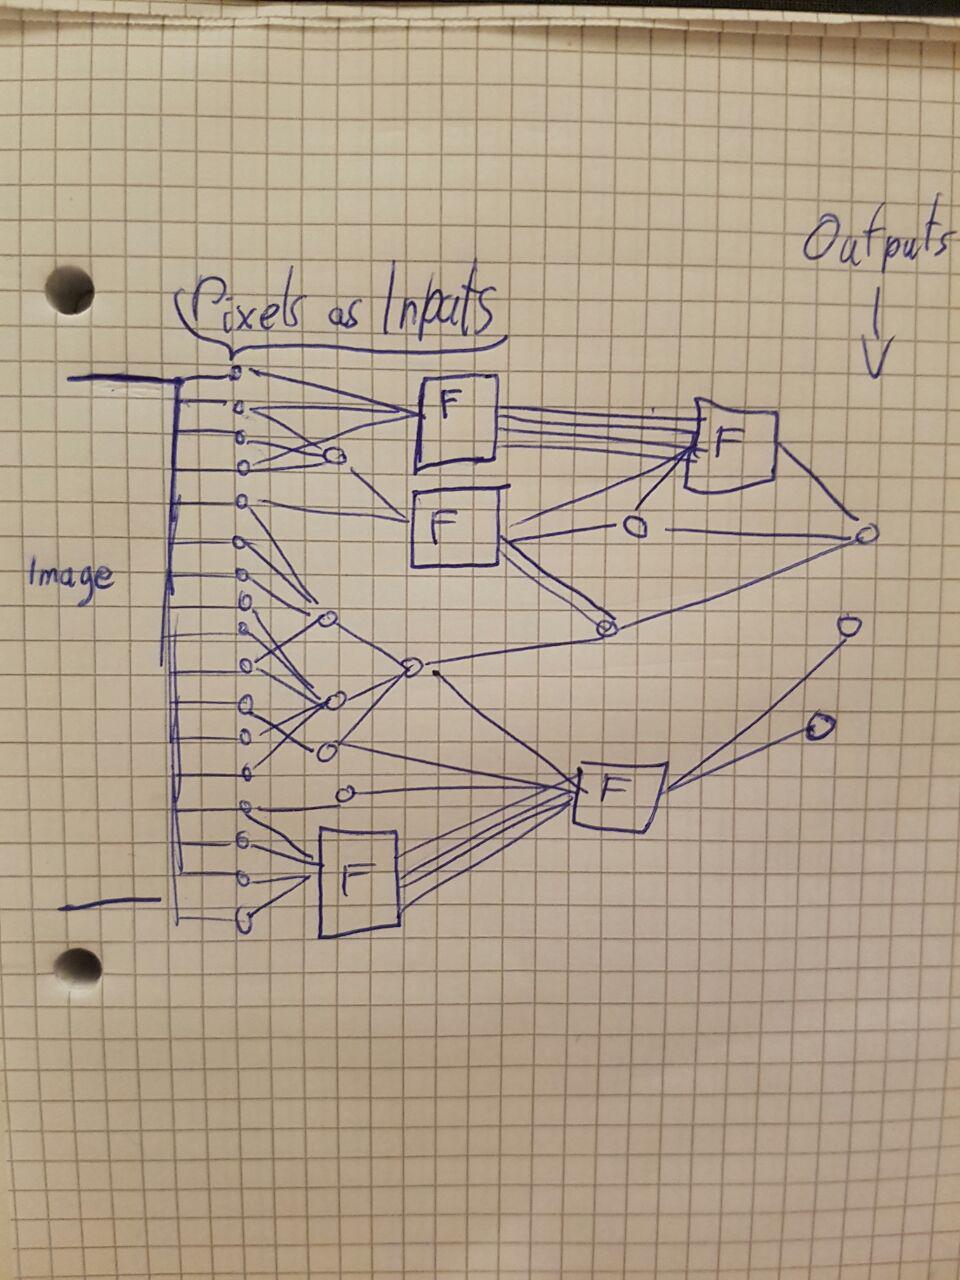 Outputs
Pixels as Inputs
F
F
F
Image
F
F